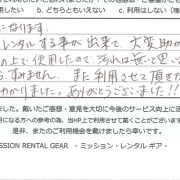 用したい b. どちらともいえない c. 利用はしない（
になります。
レンタルする事が出来て、大変助か
の上で使用したので、汚れは
すみません。また利用させて頂き
わかりました。ありがとうございました!!
ました。戴いたご感想・意見を大切に今後のサービス向上に活
になる方への参考の為、当HP上で利用させて戴くことがございます
是非、またのご利用機会を戴けましたら幸いです。
SSION RENTAL GEAR - ミッション・レンタル ギア -